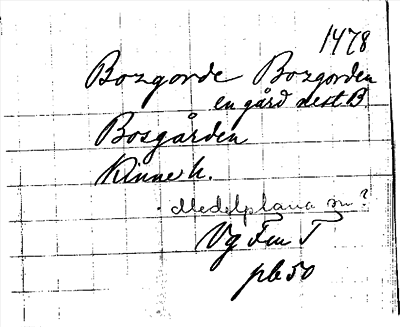 1478
Bozgorde Bozgorden
en gård nest B.
Bosgården
Kinne h.
Medelplana sn?
Vg Fru T
pb 50